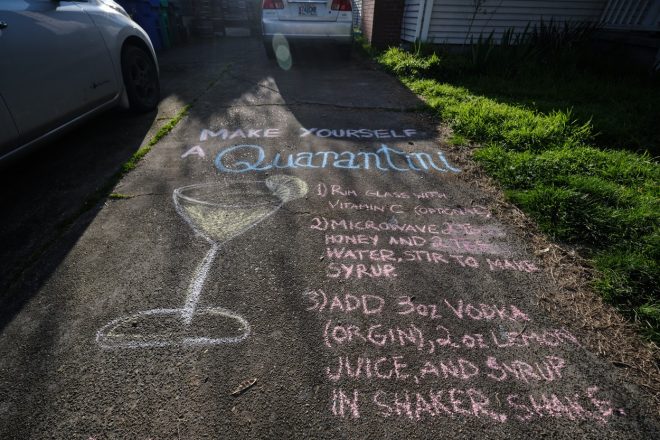 MAKE YOURSELF
A Quarantini
1) RIM GLASS WITH
VITAMIN C (OPTIONAL)
2) MICROWAVE 2 TSP
HONEY AND 2 TSP
WATER, STIR TO MAKE
SYRUP.
3) ADD 3oz VODKA
(OR GIN), 2 oz LEMON
JUICE, AND SYRUP
IN SHAKER, SHAKE.